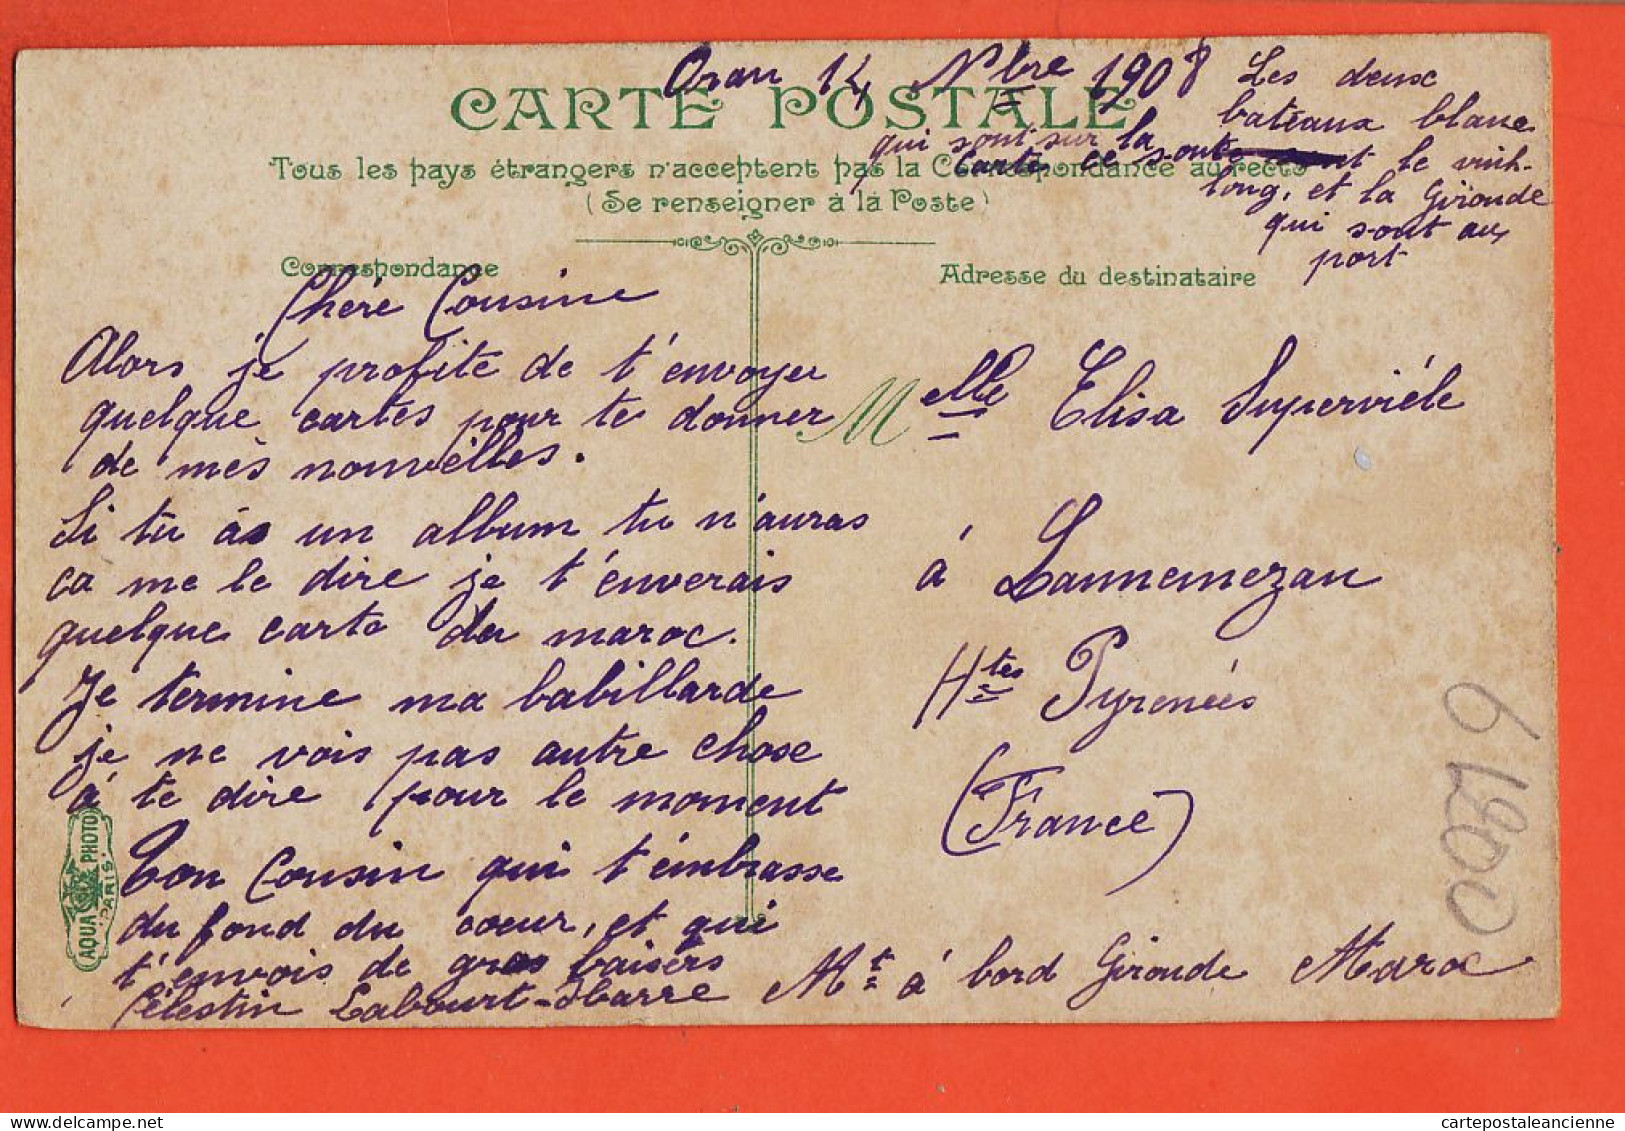 Oran 14 Nbre 1908
Les deux
bateaux blanc
qui sont sur la
carte ce sonte sont le vinh-
long, et la Gironde
qui sont au
port
CARTE POSTALE
Tous les pays étrangers n'acceptent pas la Correspondance au recto
(Se renseigner à la Poste)
Correspondance
Adresse du destinataire
Chère Cousine
Alors je profite de t'envoyer
quelque cartes pour te donner
de mes nouvelles.
Si tu as un album tu n'auras
ca me le dire je t'enverais
quelque carte du maroc.
Je termine ma babillarde
je ne vois pas autre chose
à te dire pour le moment
Ton Cousin qui t'émbrasse
du fond du coeur, et qui
t'envois de gros baisers
Célestin Labourt-Ibarre
Mt à bord Gironde Maroc
Melle Elisa Superviéle
à Lannemezan
Htes Pyrenées
(France)
AQUA PHOTO
PARIS
cartepostaleancienne